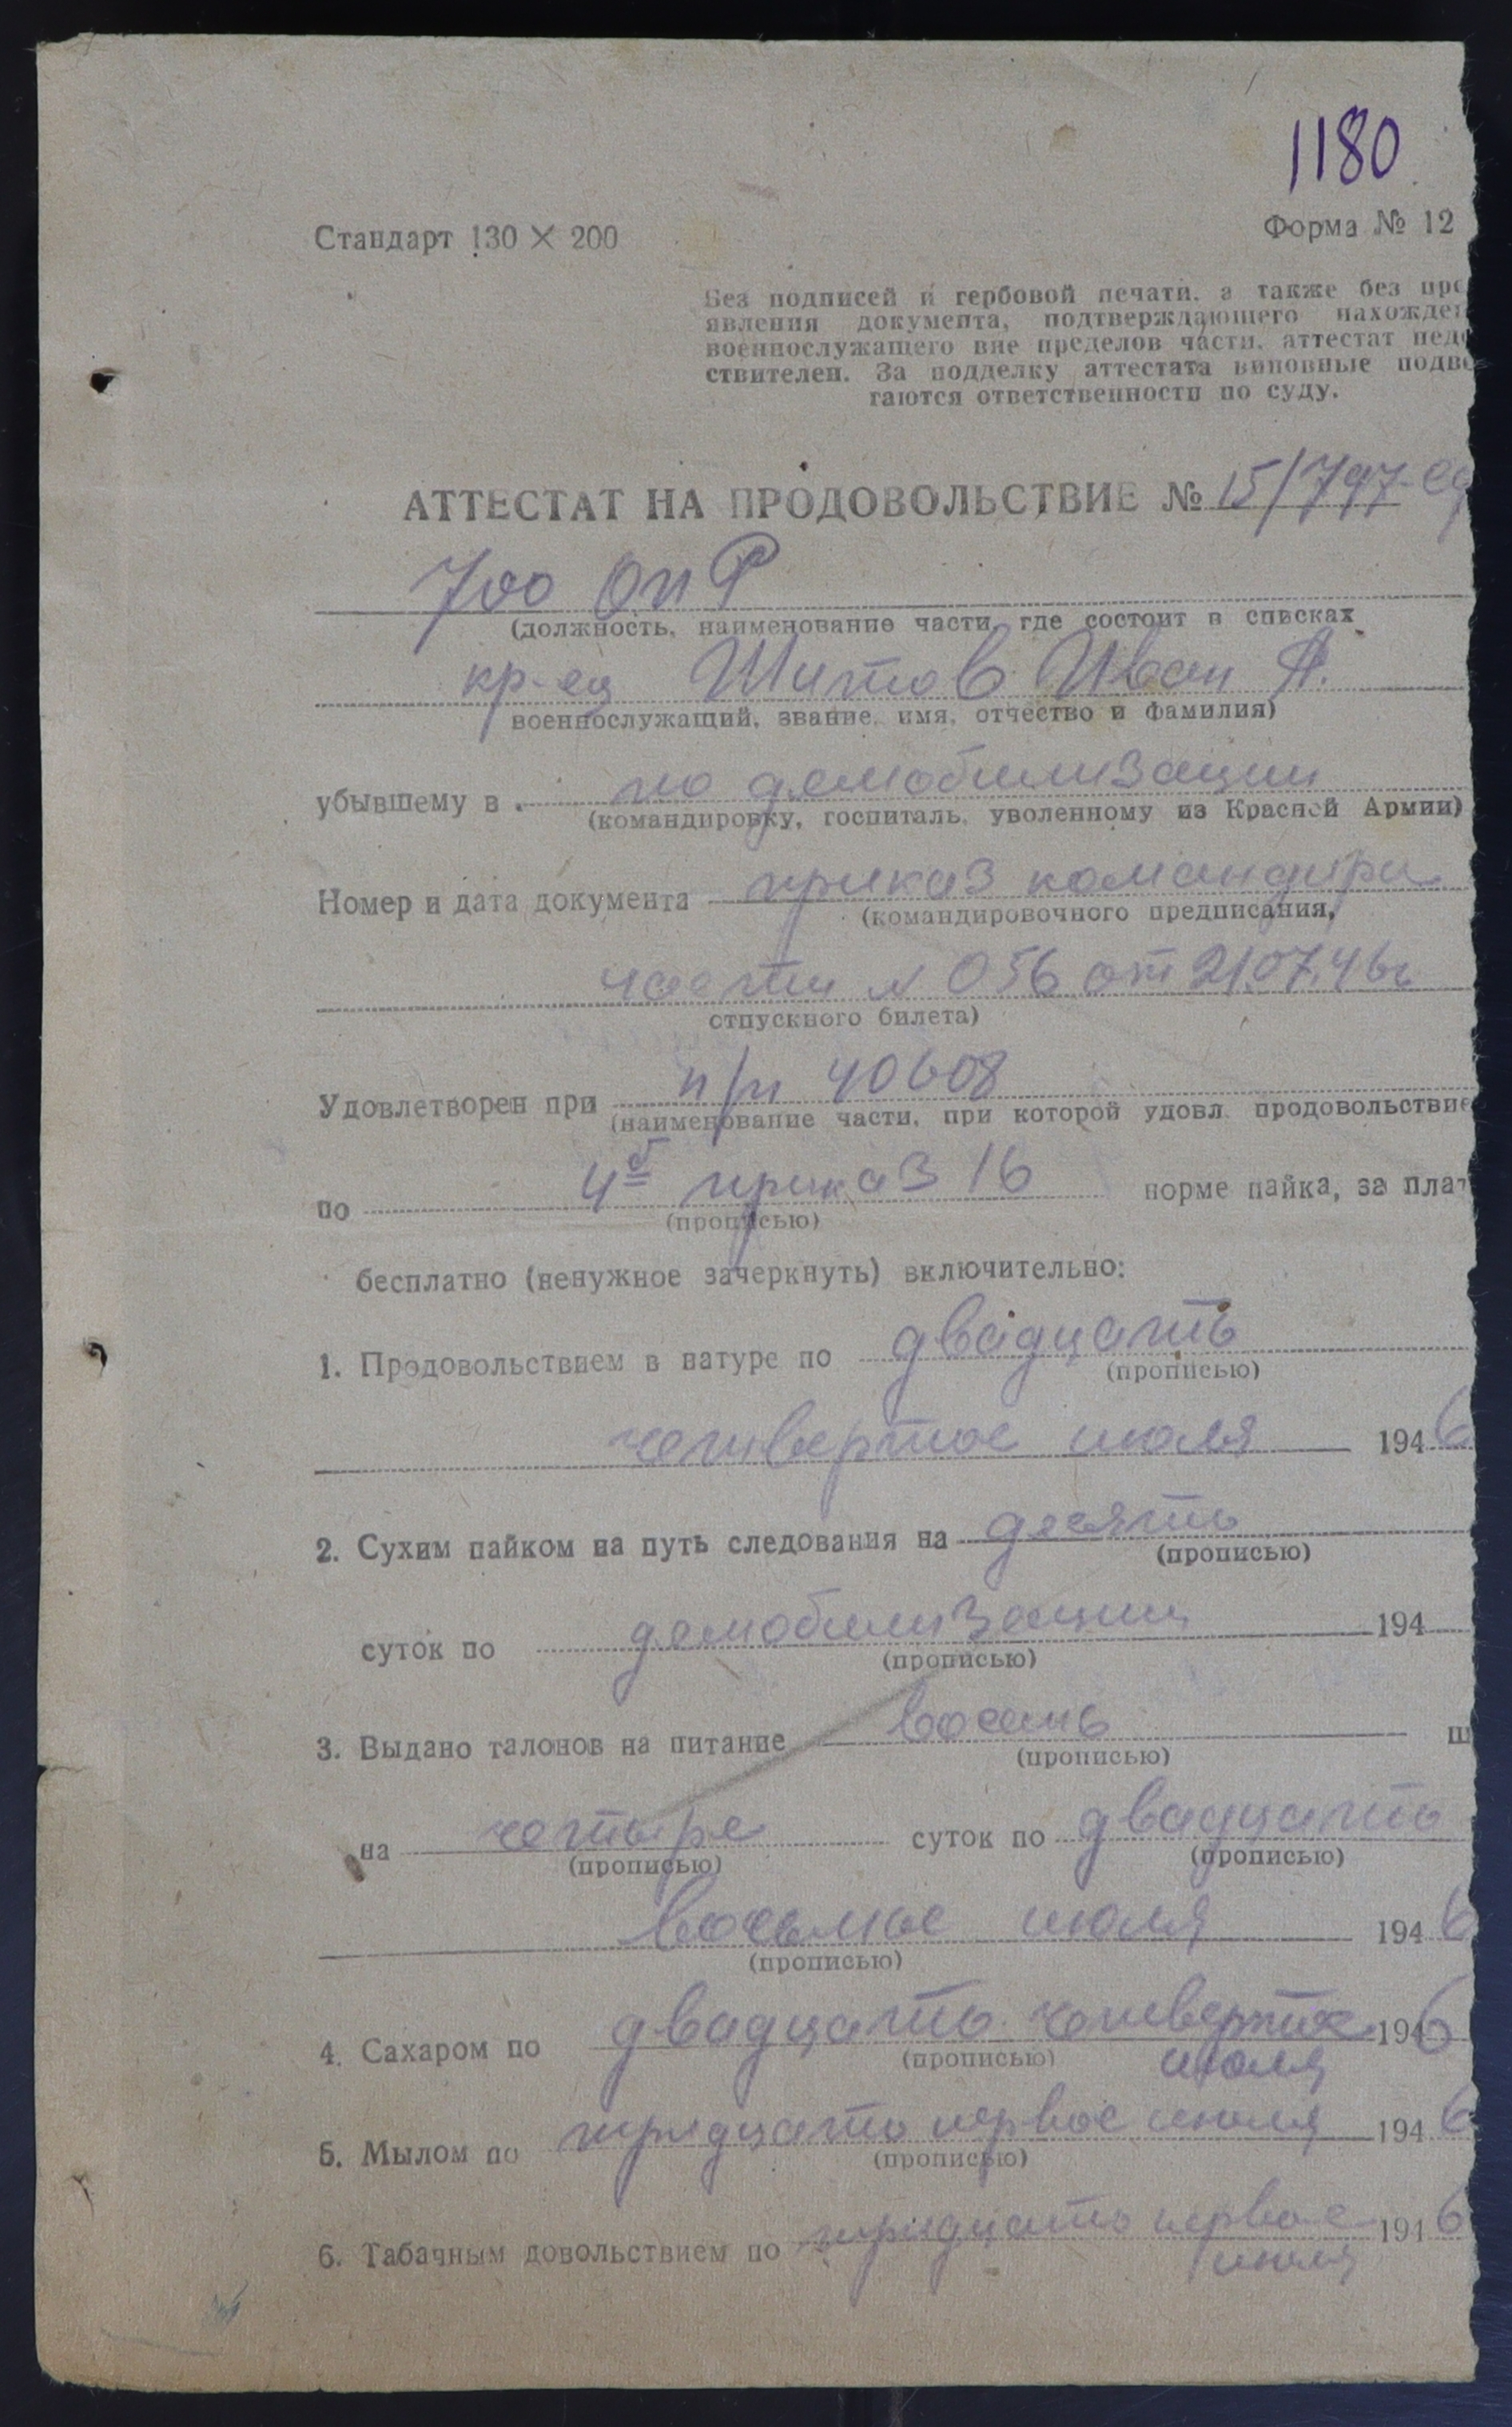 1180
Стандарт 130 × 200
Форма № 12
Без подписей и гербовой печати, а также без пре
явления документа, подтверждающего нахожден
военнослужащего вне пределов части, аттестат неде
ствителен. За подделку аттестата виновные подве
гаются ответственности по суду.
АТТЕСТАТ НА ПРОДОВОЛЬСТВИЕ № 15/797-
700 ОПР
(должность, наименование части, где состоит в списках
кр-ец Шитов Иван А.
военнослужащий, звание, имя, отчество и фамилия)
убывшему в по демобилизации
(командировку, госпиталь, уволенному из Красной Армии)
Номер и дата документа приказ командира
(командировочного предписания,
части № 056 от 21.07.46г
отпускного билета)
Удовлетворен при п/п 40608
(наименование части, при которой удовл. продовольствие
по 4б приказ 16 норме пайка, за плат
(прописью)
бесплатно (ненужное зачеркнуть) включительно:
1. Продовольствием в натуре по двадцать
(прописью)
четвертое июля 1946
2. Сухим пайком на путь следования на десять
(прописью)
суток по демобилизации 194
(прописью)
3. Выдано талонов на питание восемь ш
(прописью)
на четыре суток по двадцать
(прописью) (прописью)
восьмое июля 1946
(прописью)
4. Сахаром по двадцать четвертое 1946
(прописью) июля
5. Мылом по тридцать первое июля 1946
(прописью)
6. Табачным довольствием по тридцать первое 1946
июля